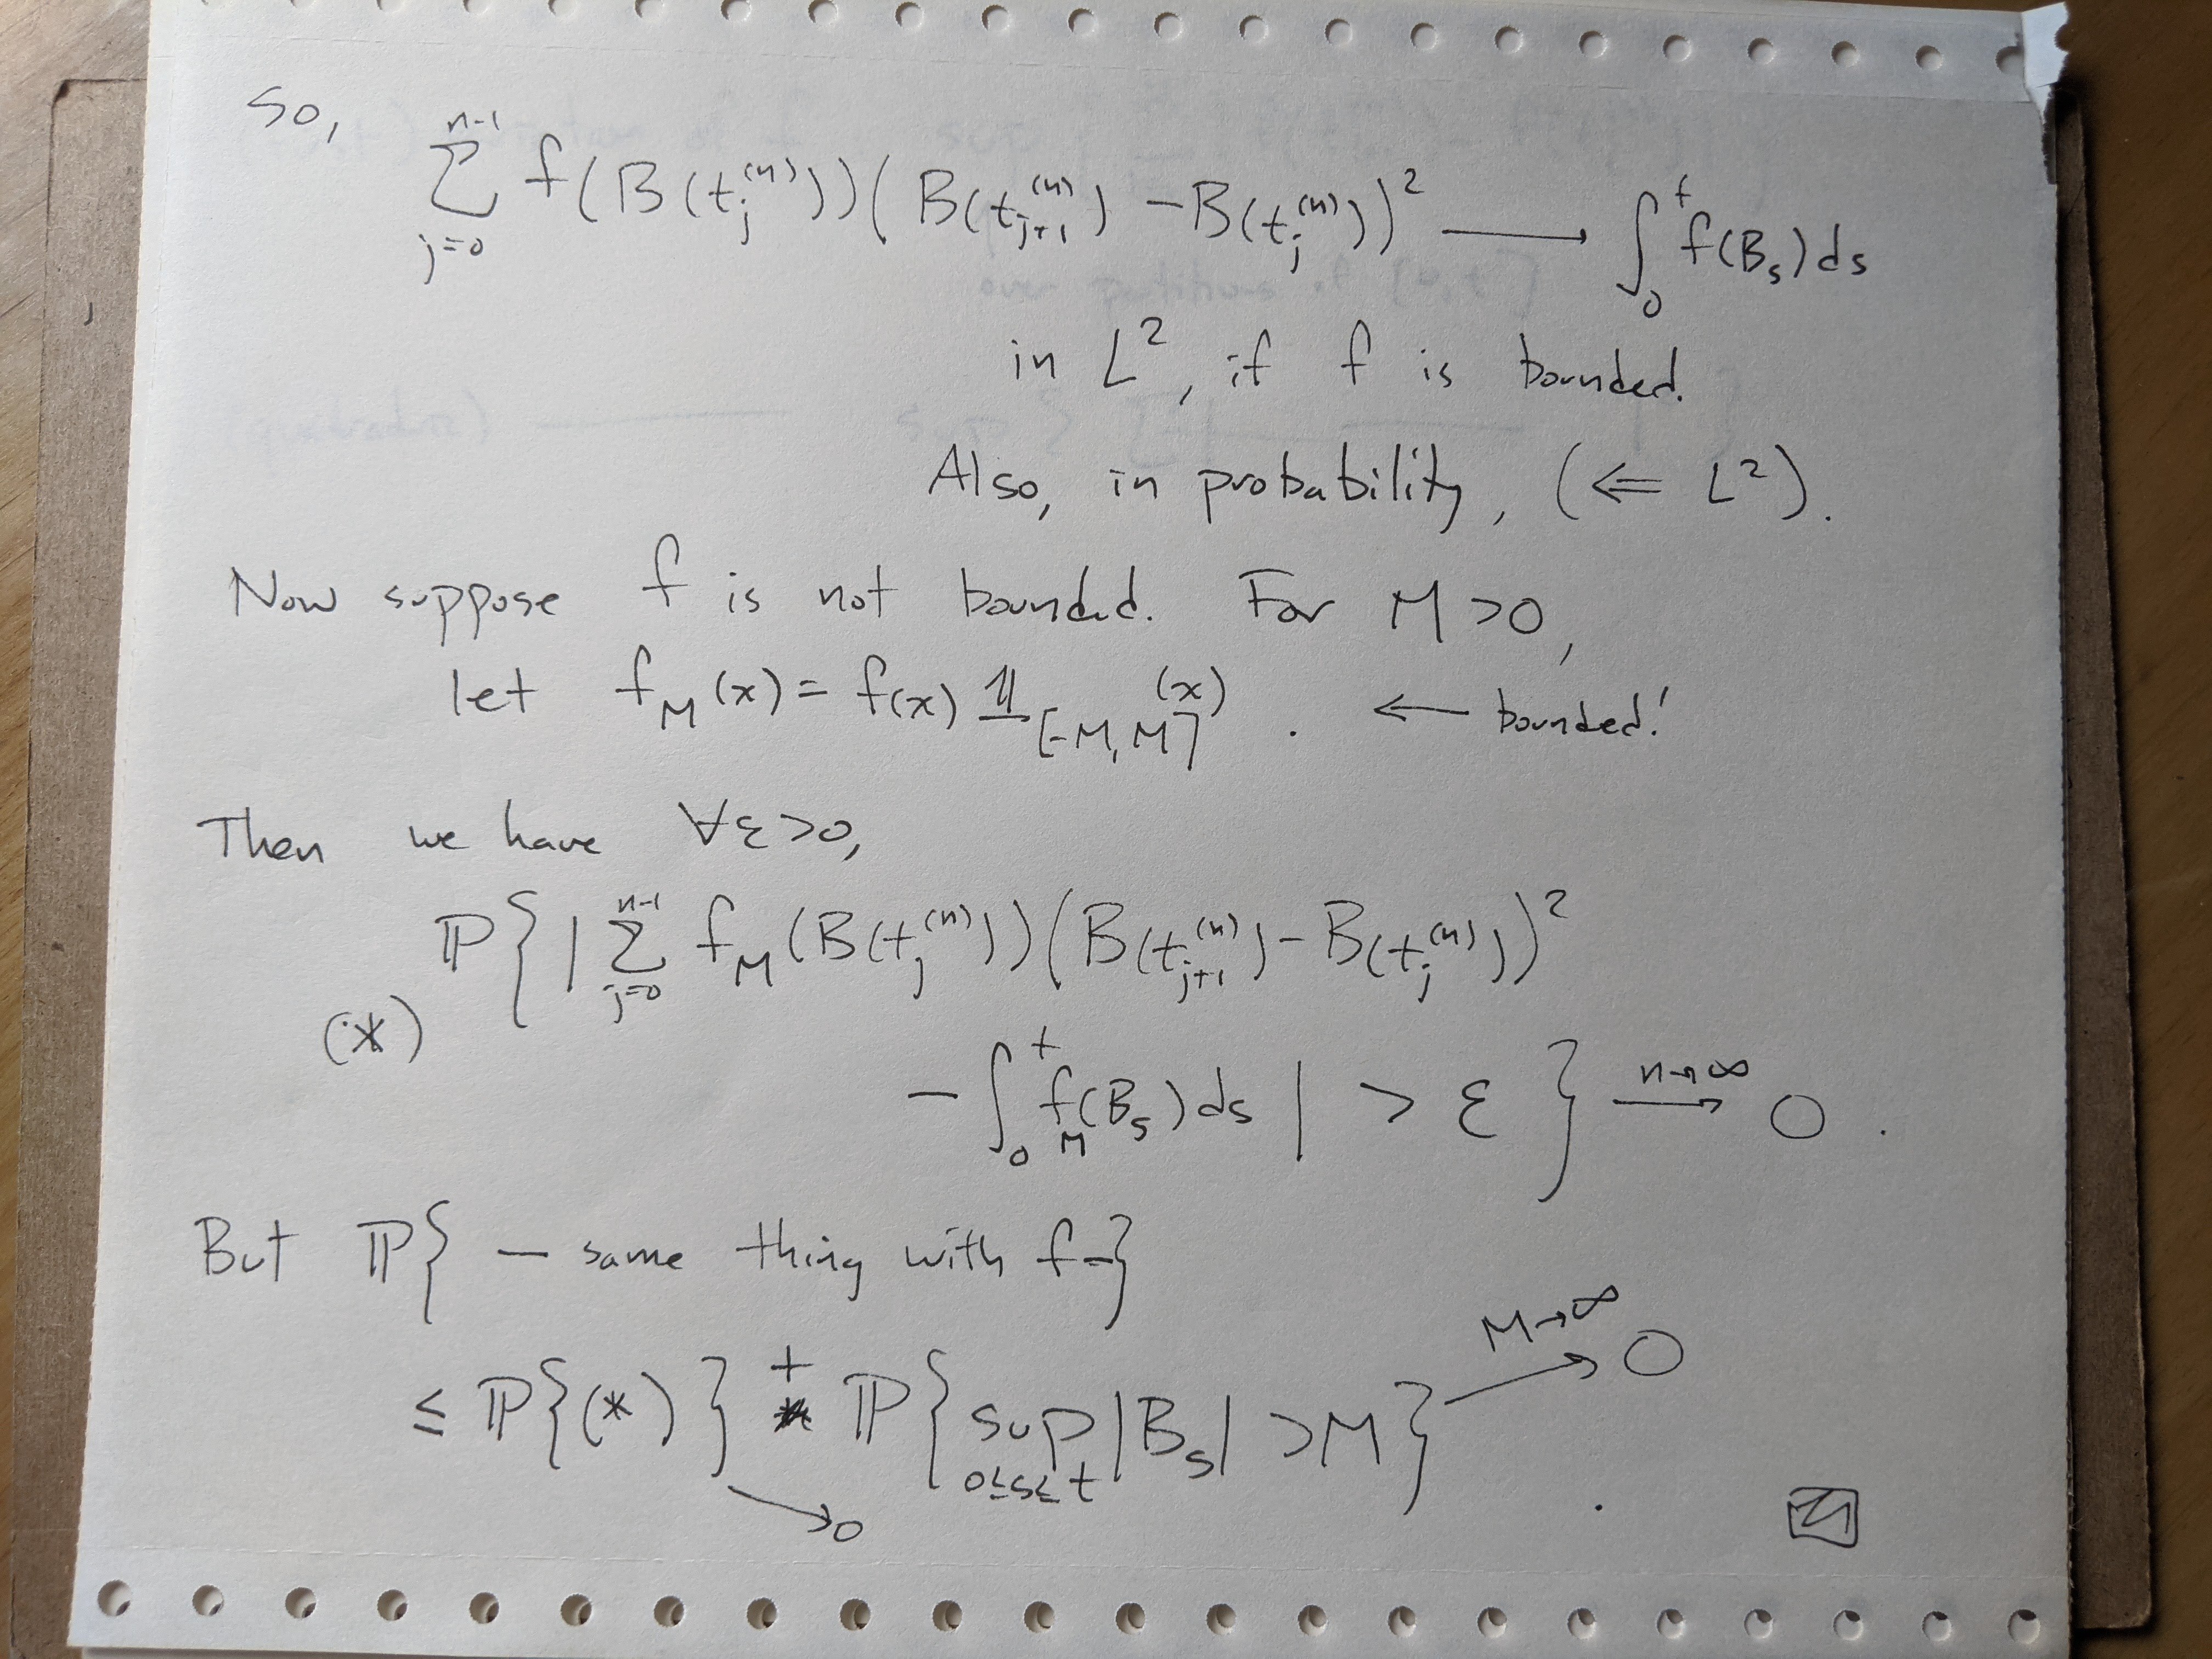 So,
∑_{j=0}^{n-1} f(B(t_j^{(n)}))(B(t_{j+1}^{(n)}) - B(t_j^{(n)}))^2 ⟶ ∫_0^t f(B_s) ds
in L^2, if f is bounded.
Also, in probability, (⇐ L^2).
Now suppose f is not bounded. For M > 0,
let f_M(x) = f(x) 𝟙_{[-M, M]}(x). ← bounded!
Then we have ∀ε>0,
ℙ{ | ∑_{j=0}^{n-1} f_M(B(t_j^{(n)}))(B(t_{j+1}^{(n)}) - B(t_j^{(n)}))^2
(*)
- ∫_0^t f_M(B_s) ds | > ε } ⟶^{n→∞} 0.
But ℙ{ — same thing with f — }
≤ ℙ{(*)} + ℙ{ sup_{0≤s≤t} |B_s| > M } ⟶^{M→∞} 0
→ 0 .